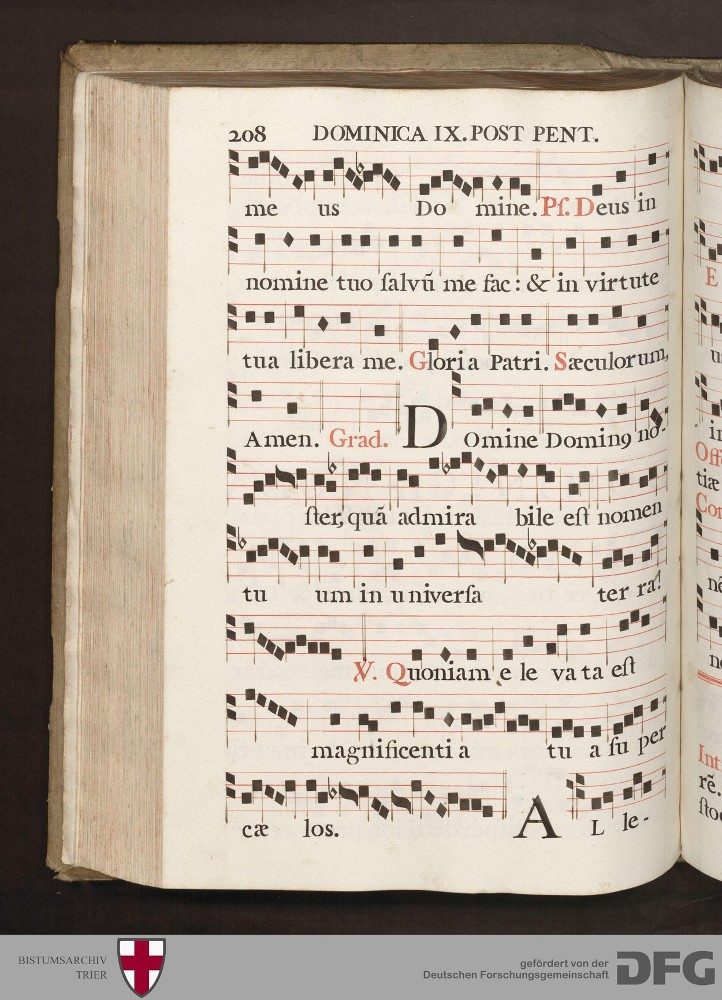 208 DOMINICA IX. POST PENT.
me us Do mine. Pſ. Deus in
nomine tuo ſalvū me fac: & in virtute
tua libera me. Gloria Patri. Sæculorum,
Amen. Grad. D Omine Domin9 no-
ſter, quã admira bile eſt nomen
tu um in univerſa ter ra!
V. Quoniam e le va ta eſt
magnificenti a tu a ſu per
cæ los. A L le-
E
in
Offe
tiæ
Con
nē
Int
rē.
ſto
BISTUMSARCHIV
TRIER
gefördert von der
Deutschen Forschungsgemeinschaft
DFG